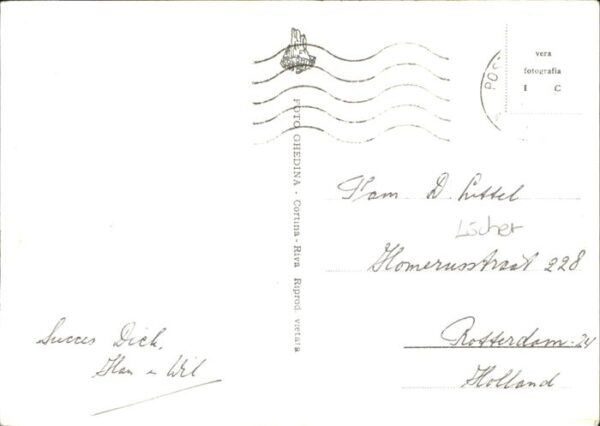 vera
fotografia
I C
POS
FOTO GHEDINA - Cortina - Riva Riprod. vietata
Fam D. Littel
Lücher
Homerusstraat 228
Rotterdam-24
Holland
Succes Dick,
Han en Wil